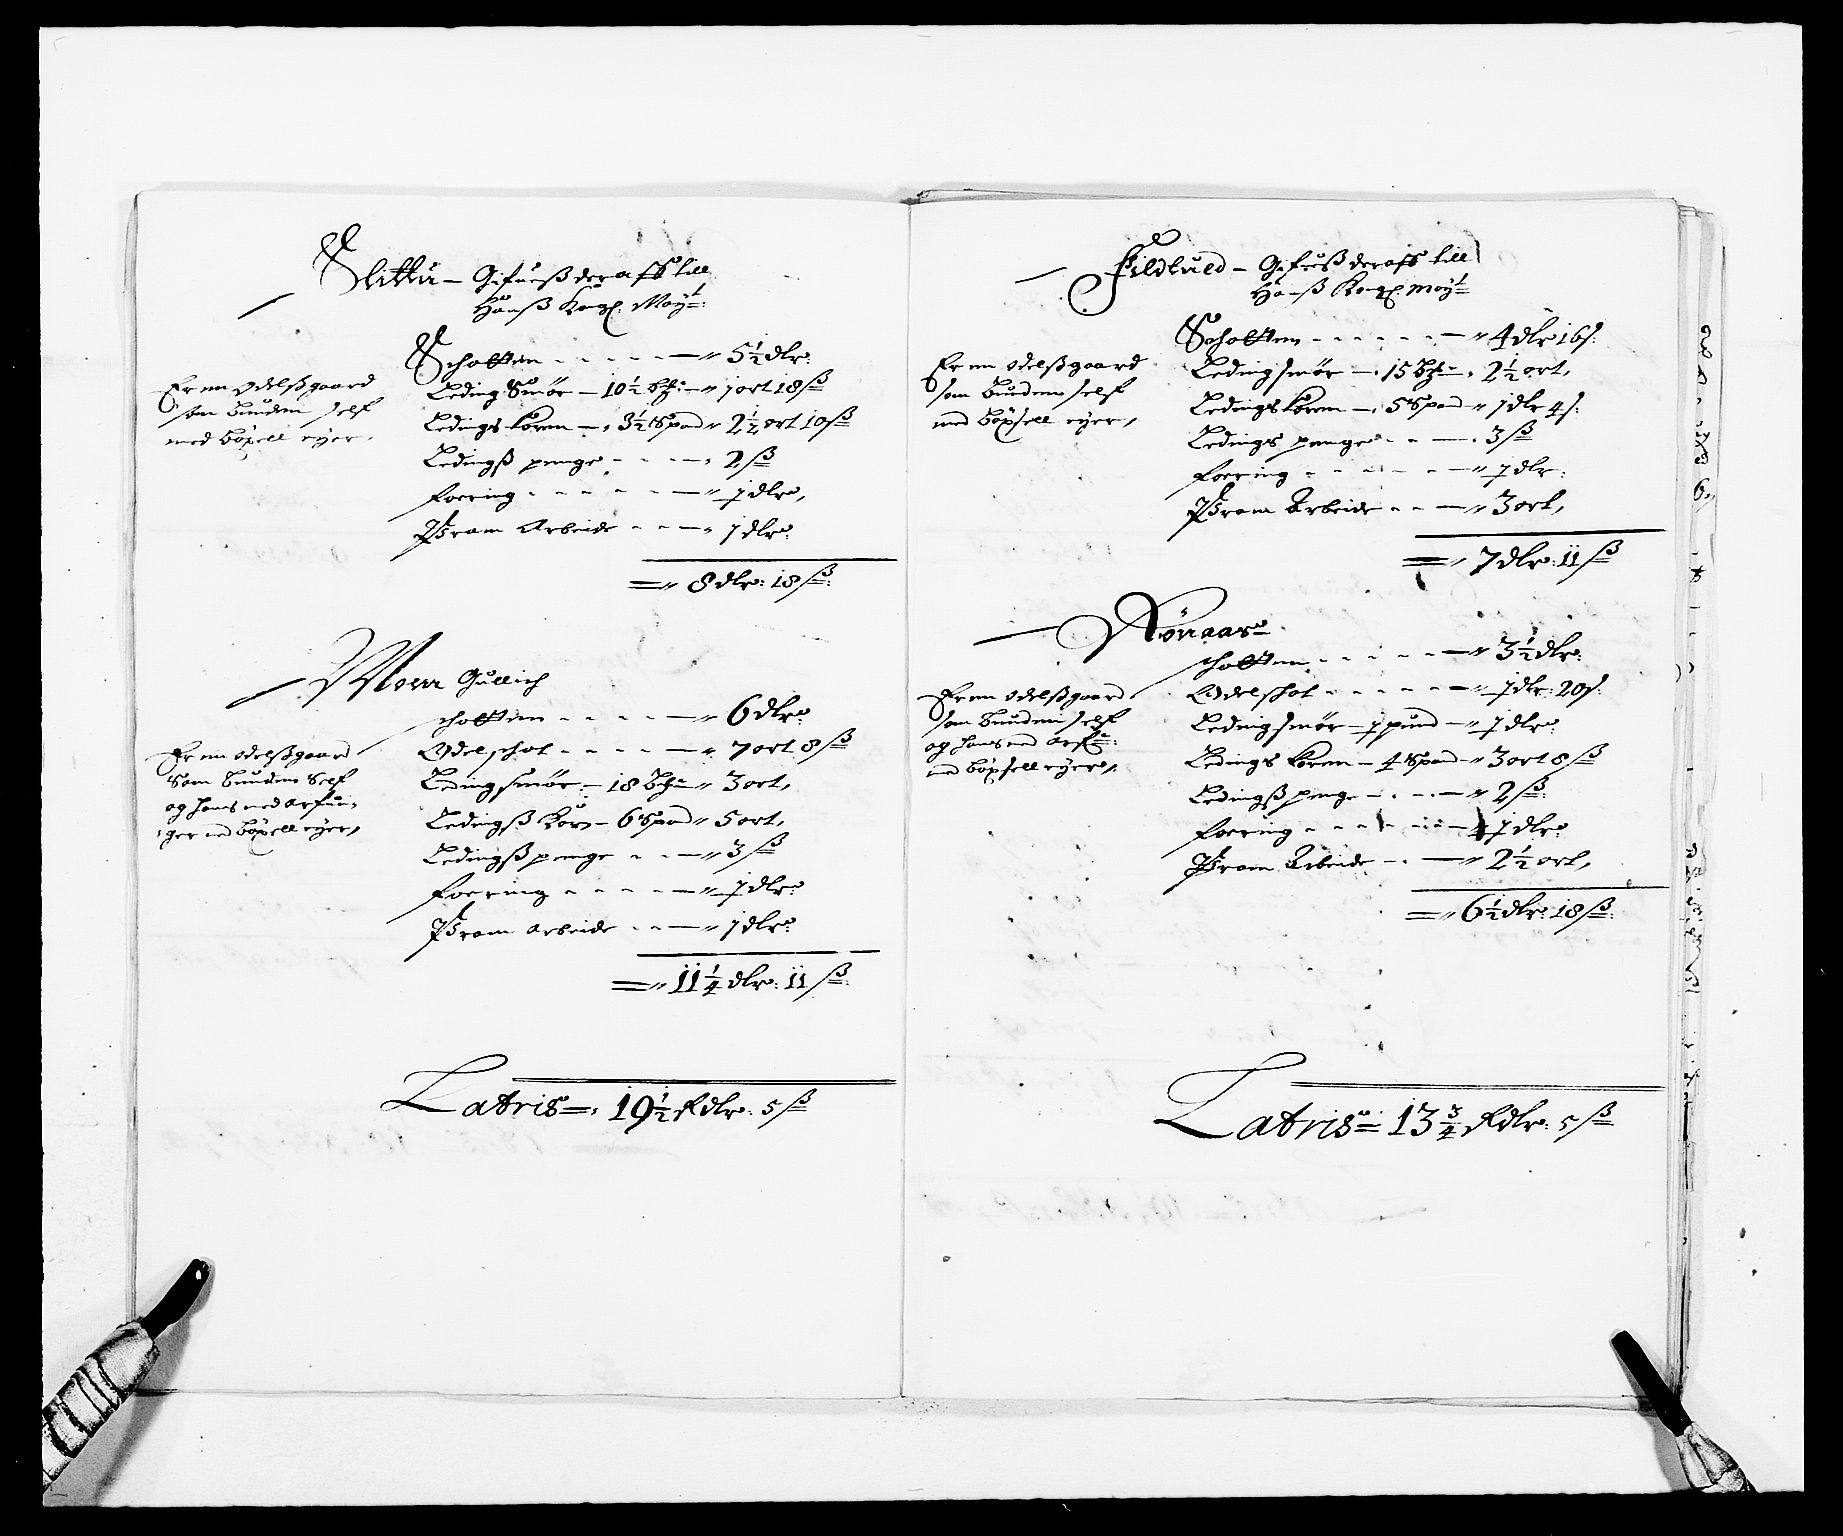 Slittu – Gifuis der aff till
Hans Kongl. Mayt:
Er en odelsgaard
som bunden self
med böxell eyer,
Schatten - - - - - 5½ dlr:
Leding Smör – 10½ - 1 ort 18 ß
Ledings korn – 3½ Spand 2½ ort 10 ß
Ledings penge - - - 2 ß
Foering - - - - - 1 dlr,
Pram Arbeide - - - 1 dlr:
8 dlr: 18 ß:
Moen Gullich
Er en odelsgaard
Som bunden Self
og hans med arfuin,
ger med böxell eyer,
schatten - - - - 6 dlr:
Odelschat - - - - 7 ort 8 ß
Ledingsmör – 18 - 3 ort,
Ledings Korn – 6 Spand 5 ort,
Ledings penge - - - 3 ß
foering - - - - - 1 dlr:
Pram arbeide - - - 1 dlr:
11¼ dlr: 11 ß:
Latris 19½ Rdlr: 5 ß
Fildtued – Gifues der aff till
Hans Kongl. Mayt
Er en odelsgaard
som bunden self
med böxsell eyer,
Schatten - - - - - 4 dlr 16 ß:
Ledingsmör – 15 - 2½ ort,
Ledings korn – 5 Spand 1 dlr 4 ß:
Ledings penge - - - 3 ß
foering - - - - - 1 dlr:
Pram Arbeide - - - 3 ort,
7 dlr: 11 ß
Rönaas
Er en odelsgaard
som bunden self
og hans med arf:
med böxsell eyer,
schatten - - - - - 3½ dlr:
Odelschat - - - - - 1 dlr: 20 ß:
Ledingsmör – 1 pund – 1 dlr:
Ledings korn – 4 Spand 3 ort 8 ß
Ledings penge - - - 2 ß:
foering - - - - - 1 dlr:
Pram Arbeide - - - 2½ ort,
6½ dlr: 18 ß:
Latris 13¾ Rdlr: 5 ß